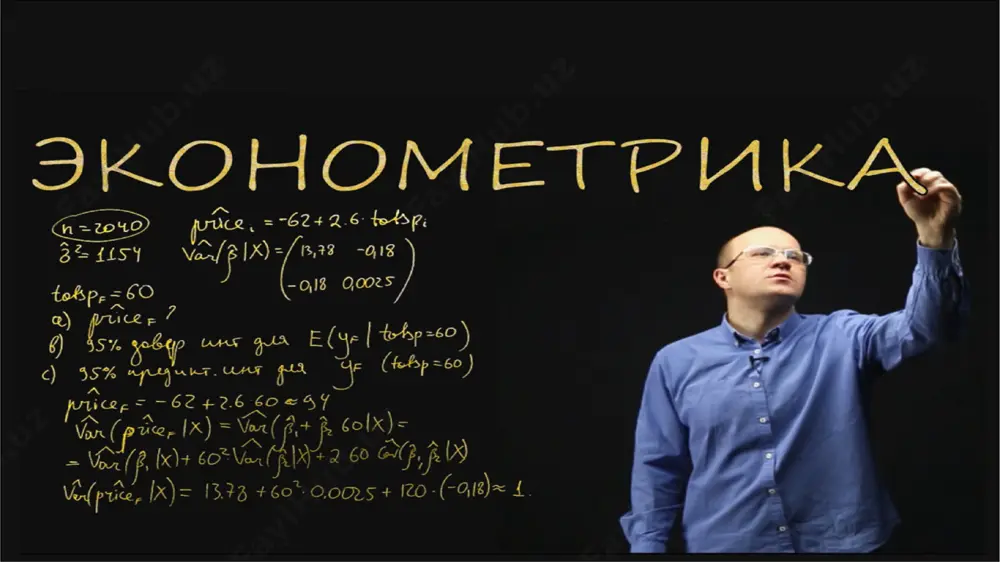 ЭКОНОМЕТРИКА
n=2040 priceᵢ = -62+2.6·totspᵢ
σ̂²=1154 Var̂(β̂|X) = (13,78 -0,18
-0,18 0,0025)
totsp_F=60
a) pricê_F ?
b) 95% довер инт для E(y_F | totsp=60)
c) 95% предикт. инт для y_F (totsp=60)
pricê_F = -62+2.6·60≈94
Var̂(pricê_F|X) = Var̂(β̂₁+β̂₂ 60|X) =
= Var̂(β̂₁|X)+60²·Var̂(β̂₂|X)+2·60 Cov̂(β̂₁,β̂₂|X)
Var̂(pricê_F|X) = 13.78+60²·0.0025+120·(-0,18)≈1.